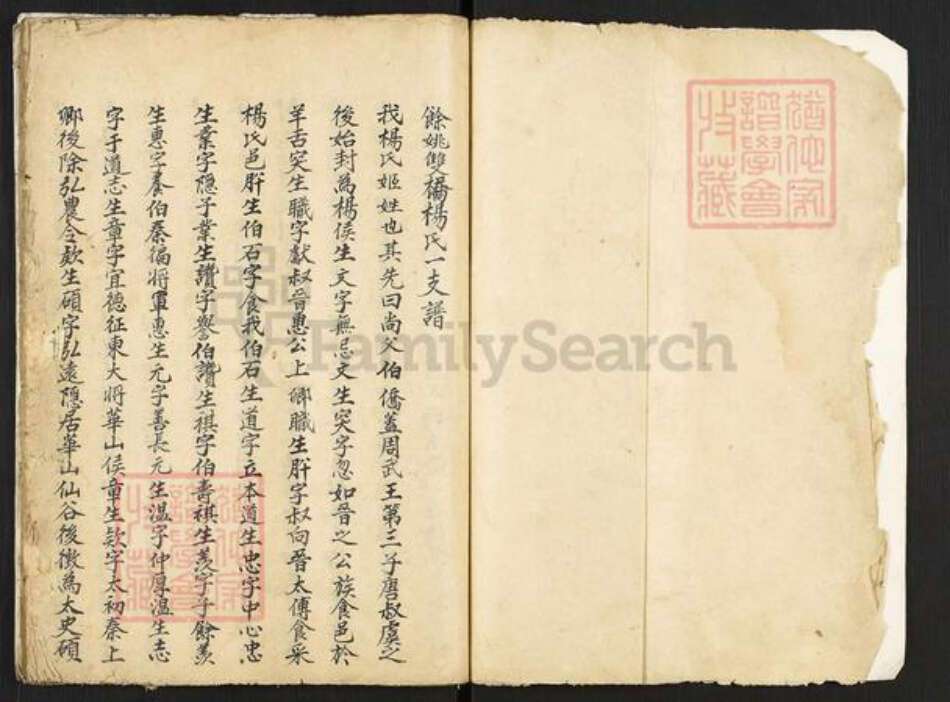 餘姚雙橋楊氏一支譜
我楊氏姬姓也其先曰尚父伯僑蓋周武王第三子唐叔虞之
後始封為楊侯生文字無忌文生突字忽如晉之公族食邑於
羊舌突生職字猷叔晉惠公上卿職生肸字叔向晉太傅食采
楊氏邑肸生伯石字食我伯石生道字立本道生忠字中心忠
生業字隱子業生讚字譽伯讚生祺字伯壽祺生羨字子餘羨
生惠字養伯秦徧將軍惠生元字善長元生溫字仲厚溫生志
字于道志生章字宜德征東大將華山侯章生款字太初秦上
卿後除弘農令款生碩字弘遠隱居華山仙谷後徵為太史碩
FamilySearch
譜學會
收藏